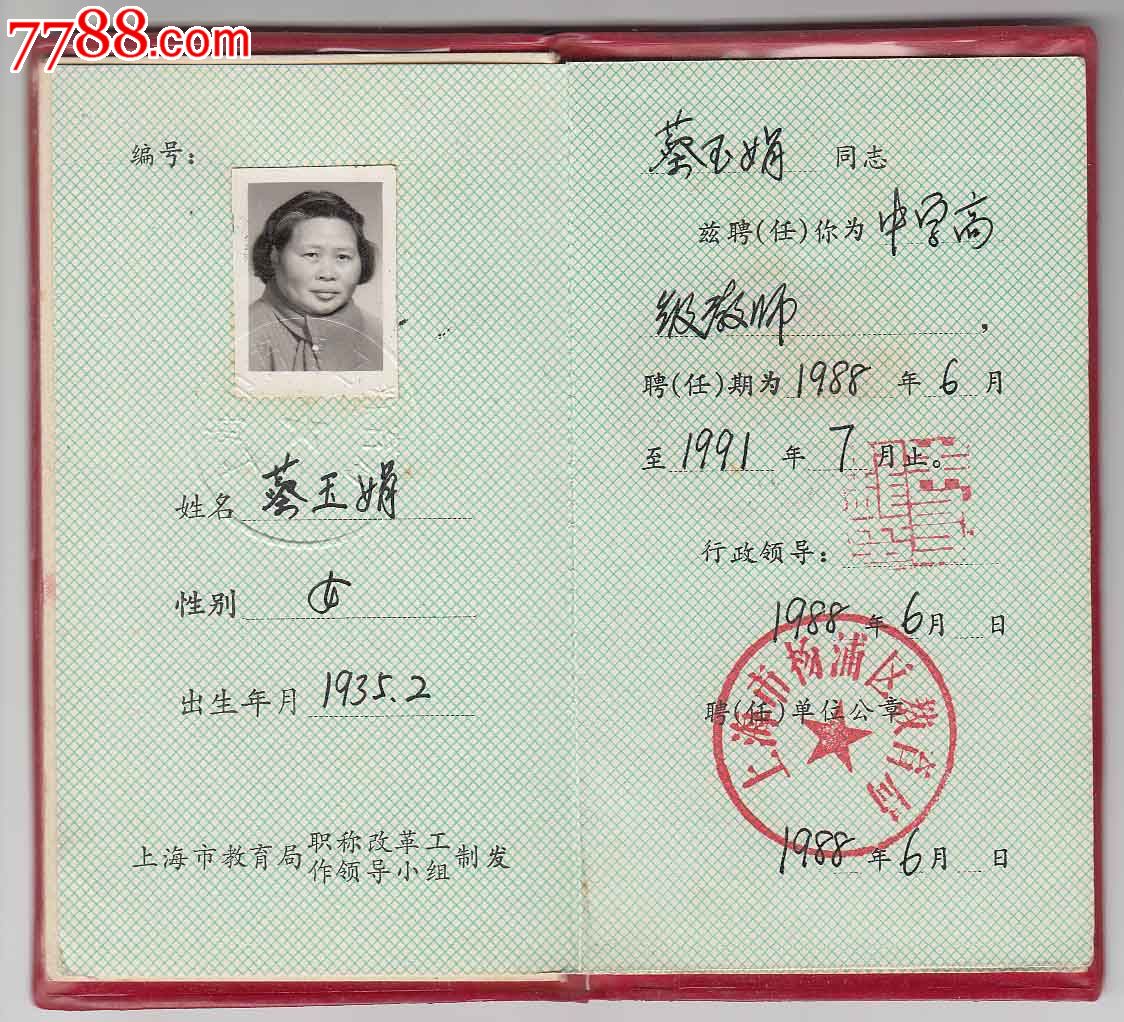 7788.com
编号：
姓名 蔡玉娟
性别 女
出生年月 1935.2
上海市教育局职称改革工作领导小组制发
蔡玉娟 同志
兹聘(任)你为 中学高
级教师，
聘(任)期为 1988 年 6 月
至 1991 年 7 月止。
行政领导：
1988 年 6 月 日
聘(任)单位公章
上海市杨浦区教育局
1988 年 6 月 日